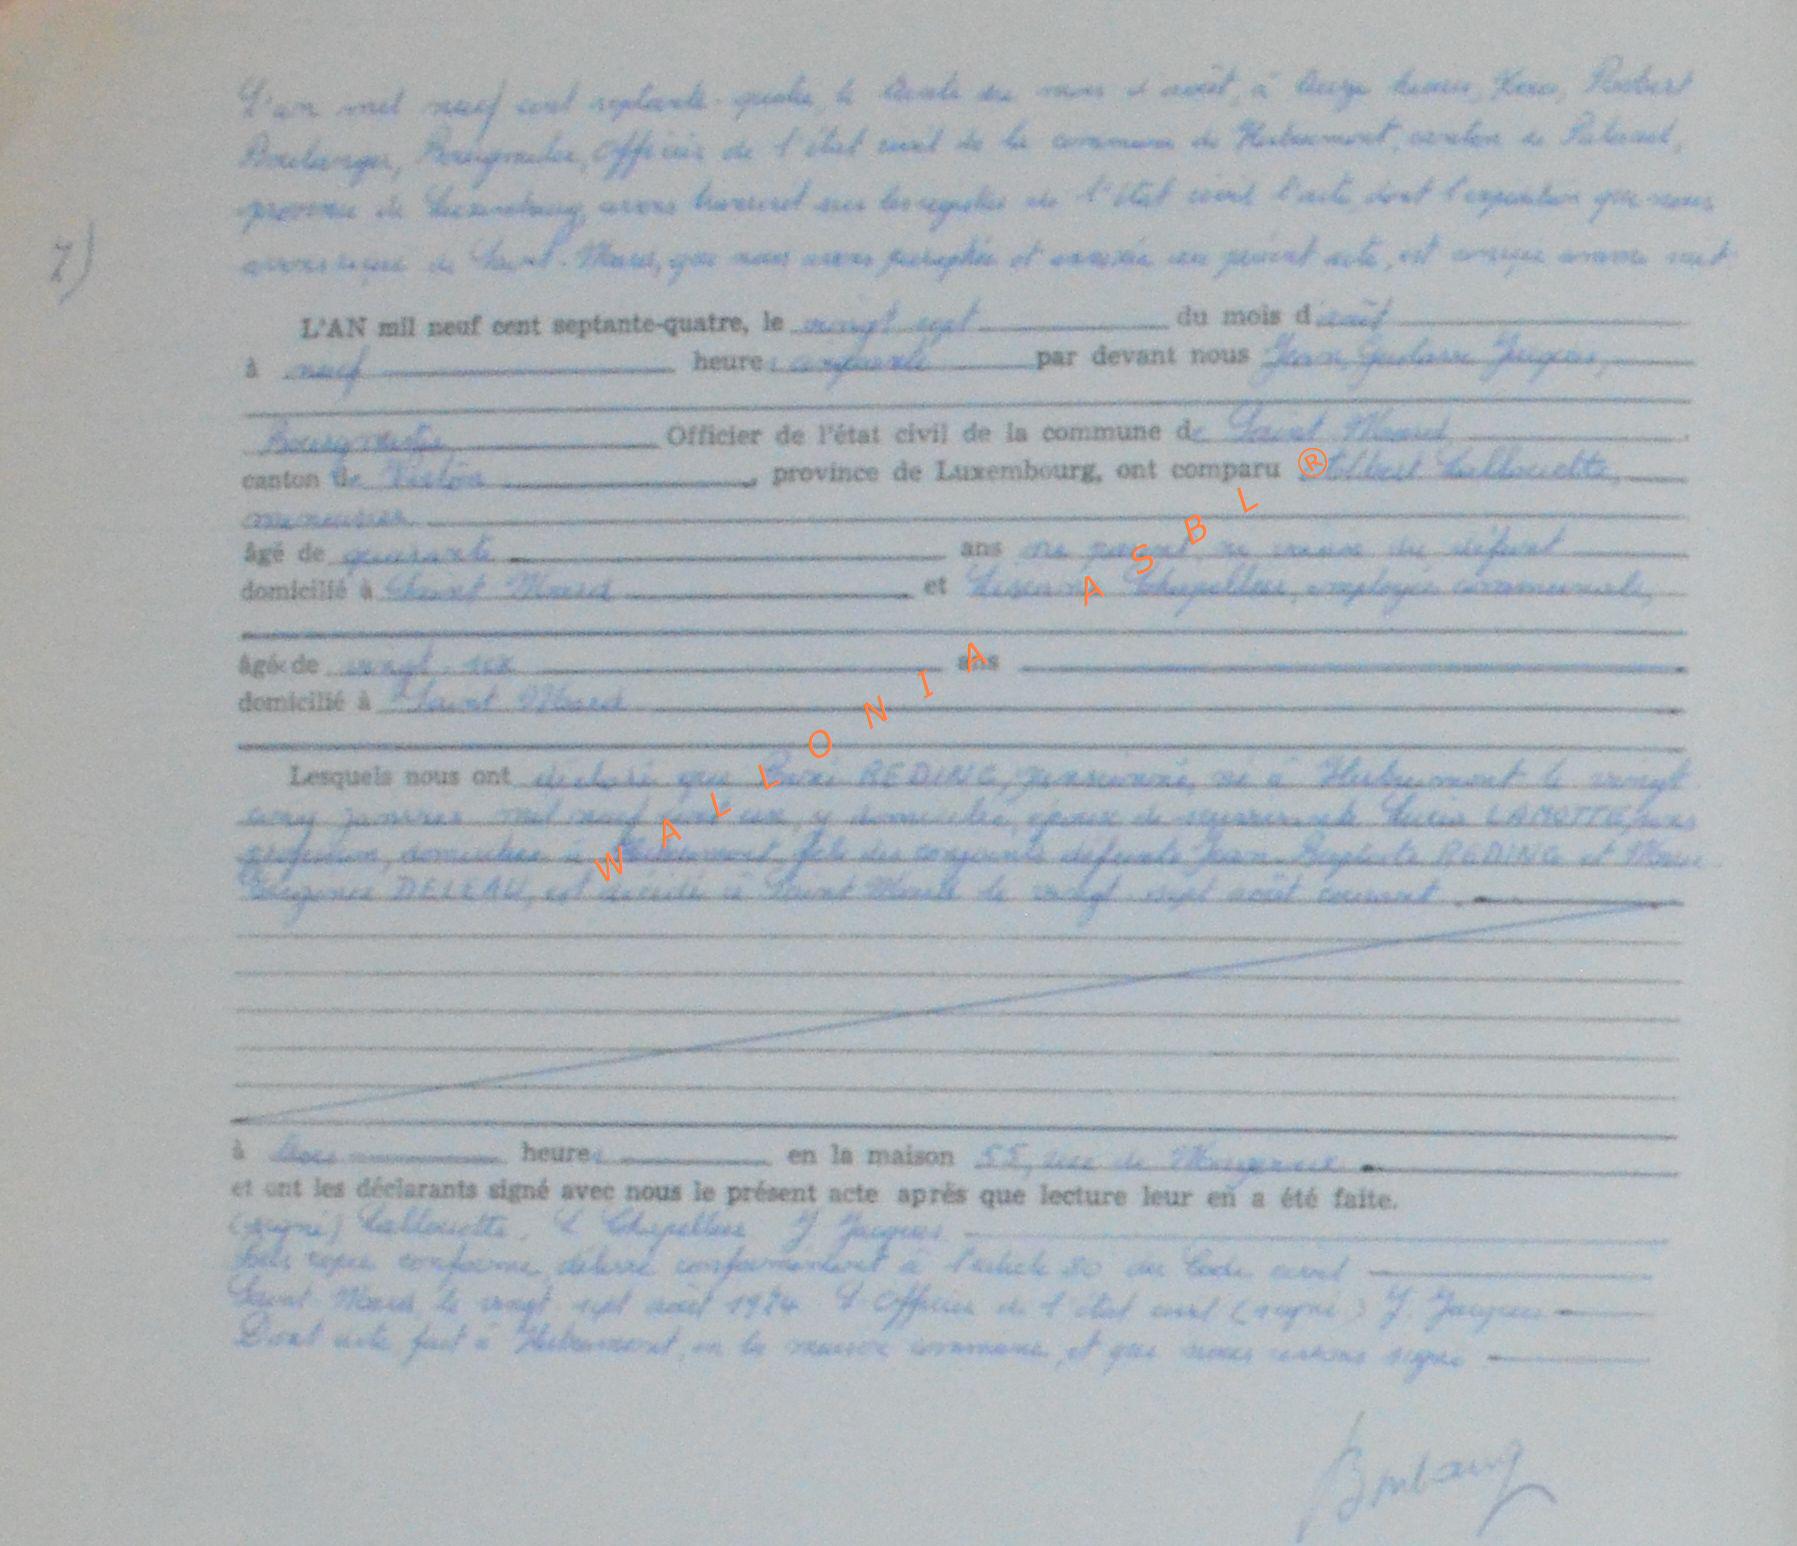 L'an mil neuf cent septante-quatre, le trente du mois d'août, à onze heures, Nous, Robert
Boulanger, Bourgmestre, Officier de l'état civil de la commune de Herbeumont, canton de Paliseul,
province de Luxembourg, avons transcrit sur les registres de l'état civil l'acte, dont l'expédition que nous
7)
avons reçue de Saint-Mard, que nous avons paraphée et annexée au présent acte, est conçue comme suit
L'AN mil neuf cent septante-quatre, le vingt sept du mois d'août
à neuf heures cinquante par devant nous Jean, Gustave Jacques,
Bourgmestre Officier de l'état civil de la commune de Saint Mard
canton de Virton, province de Luxembourg, ont comparu Albert Lallouette,
menuisier
âgé de quarante ans ni parent, ni voisin du défunt
domicilié à Saint Mard et Chapellier, employée communale,
âgée de vingt six ans
domicilié à Saint Mard
Lesquels nous ont déclaré que René REDING, pensionné, né à Herbeumont le vingt
cinq janvier mil neuf cent six, y domicilié, époux de survivante Lucie LAMOTTE, sans
profession, domiciliée à Herbeumont, fils des conjoints défunts Jean Baptiste REDING et Marie
DELEAU, est décédé à Saint Mard le vingt sept août courant.
à heures en la maison 55, rue de
et ont les déclarants signé avec nous le présent acte après que lecture leur en a été faite.
(signé) Lallouette, L Chapellier J Jacques
copie conforme, délivré conformément à l'article 80 du Code civil
Saint Mard, le vingt sept août 1974 L'Officier de l'état civil (signé) J. Jacques
Dont acte, fait à Herbeumont, en la maison commune, et que nous avons signé
Boulanger
WALLONIA ASBL ®